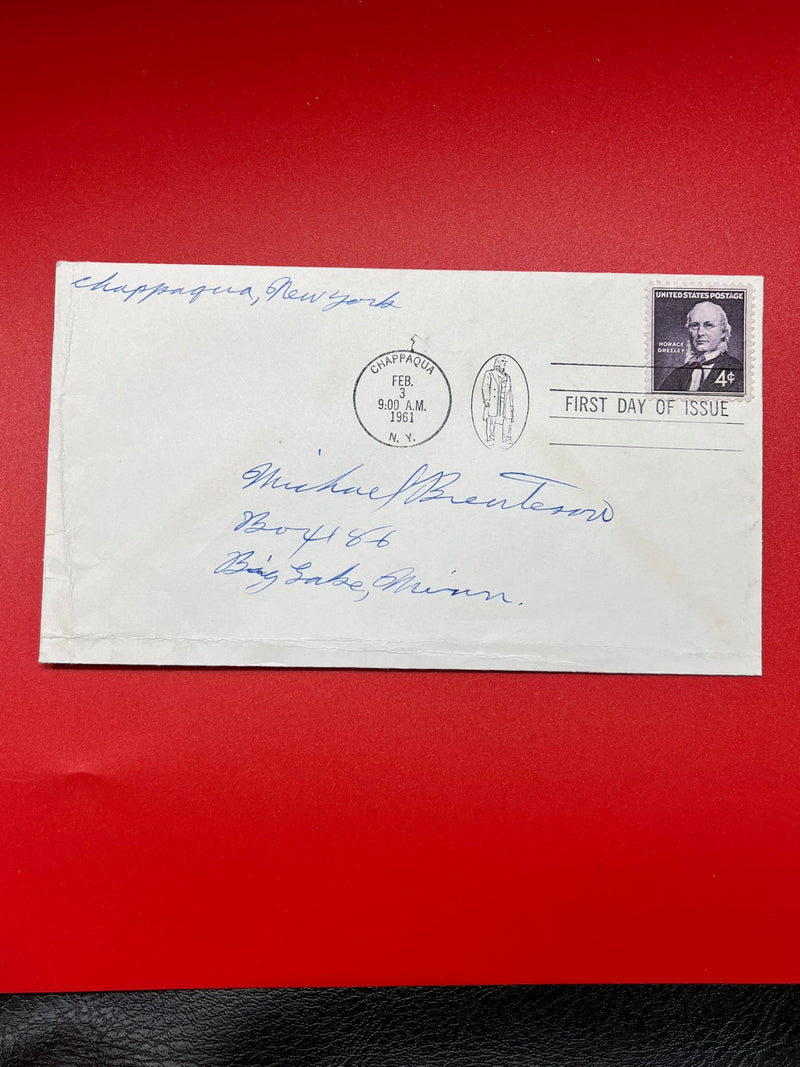 Chappaqua, New York
UNITED STATES POSTAGE
HORACE
GREELEY
4¢
CHAPPAQUA
FEB.
3
9:00 A.M.
1961
N. Y.
FIRST DAY OF ISSUE
Michael
Box 186
Big Lake, Minn.